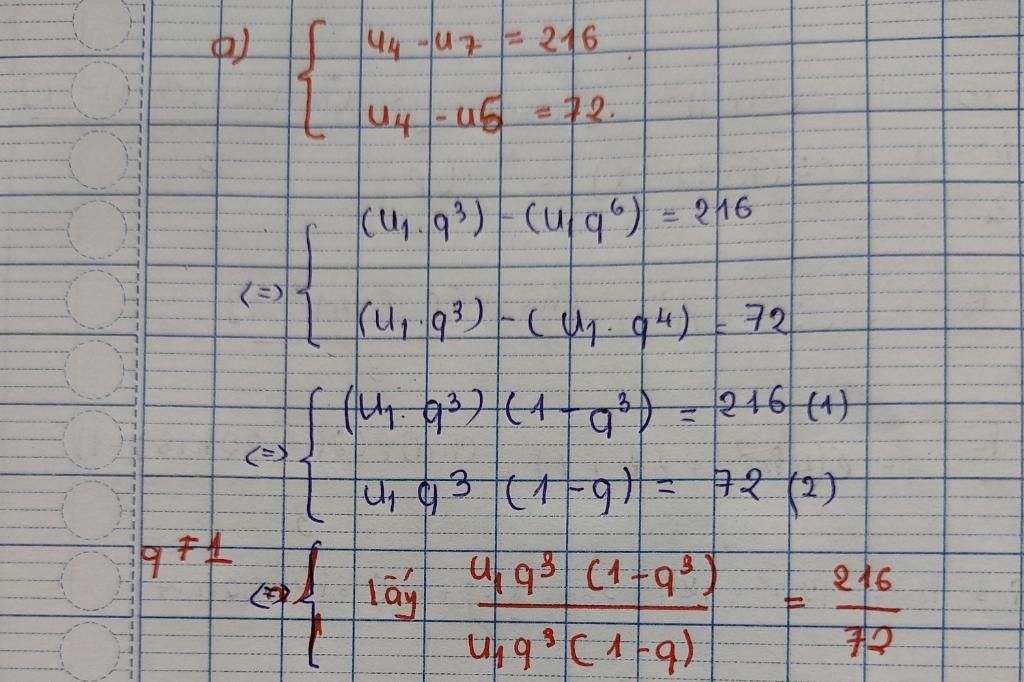 a) { u₄ - u₇ = 216
u₄ - u₅ = 72.
<=> { (u₁. q³) - (u₁ q⁶) = 216
(u₁. q³) - ( u₁. q⁴) = 72
<=> { (u₁. q³) (1 - q³) = 216 (1)
u₁ q³ (1 - q) = 72 (2)
q ≠ 1
<=> { lấy u₁ q³ (1 - q³) / u₁ q³ (1 - q) = 216 / 72